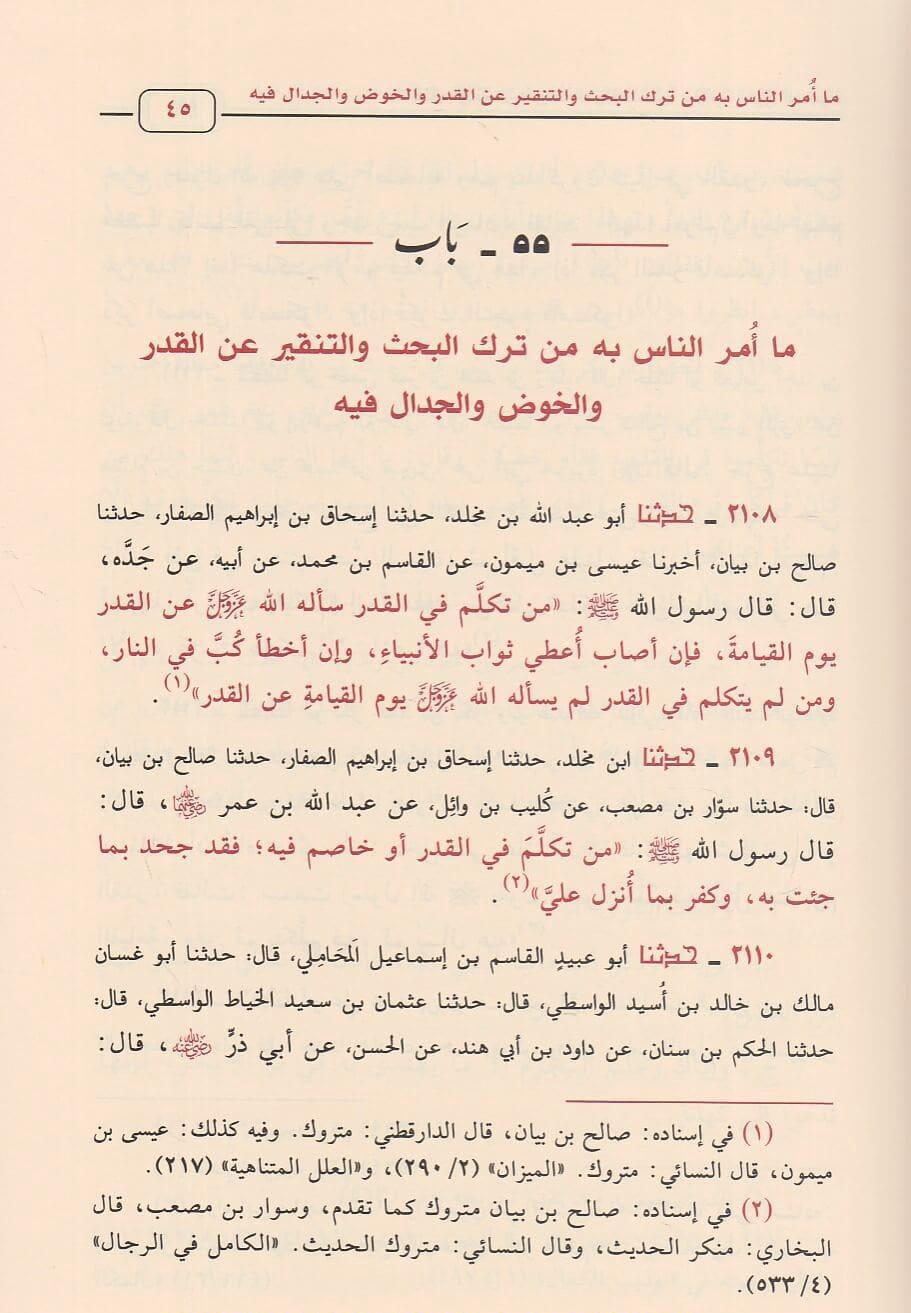 ما أُمر الناس به من ترك البحث والتنقير عن القدر والخوض والجدال فيه ٤٥
٥٥ ـ بَاب
ما أُمر الناس به من ترك البحث والتنقير عن القدر
والخوض والجدال فيه
٢١٠٨ ـ حدثنا أبو عبد الله بن مخلد، حدثنا إسحاق بن إبراهيم الصفار، حدثنا
صالح بن بيان، أخبرنا عيسى بن ميمون، عن القاسم بن محمد، عن أبيه، عن جَدَّه،
قال: قال رسول الله ﷺ: «من تكلَّم في القدر سأله الله عَزَّوَجَلَّ عن القدر
يوم القيامةَ، فإن أصاب أُعطي ثواب الأنبياءِ، وإن أخطأ كُبَّ في النار،
ومن لم يتكلم في القدر لم يسأله الله عَزَّوَجَلَّ يوم القيامةِ عن القدر»(١).
٢١٠٩ ـ حدثنا ابن مخلد، حدثنا إسحاق بن إبراهيم الصفار، حدثنا صالح بن بيان،
قال: حدثنا سوّار بن مصعب، عن كُليب بن وائل، عن عبد الله بن عمر رضي الله عنهما، قال:
قال رسول الله ﷺ: «من تكلَّمَ في القدر أو خاصم فيه؛ فقد جحد بما
جئت به، وكفر بما أُنزل عليَّ»(٢).
٢١١٠ ـ حدثنا أبو عبيدٍ القاسم بن إسماعيل المَحَامِلي، قال: حدثنا أبو غسان
مالك بن خالد بن أُسيد الواسطي، قال: حدثنا عثمان بن سعيد الخياط الواسطي، قال:
حدثنا الحكم بن سنان، عن داود بن أبي هند، عن الحسن، عن أبي ذرٍّ رضي الله عنه، قال:
(١) في إسناده: صالح بن بيان، قال الدارقطني: متروك. وفيه كذلك: عيسى بن
ميمون، قال النسائي: متروك. «الميزان» (٢/ ٢٩٠)، و«العلل المتناهية» (٢١٧).
(٢) في إسناده: صالح بن بيان متروك كما تقدم، وسوار بن مصعب، قال
البخاري: منكر الحديث، وقال النسائي: متروك الحديث. «الكامل في الرجال»
(٤/ ٥٣٣).